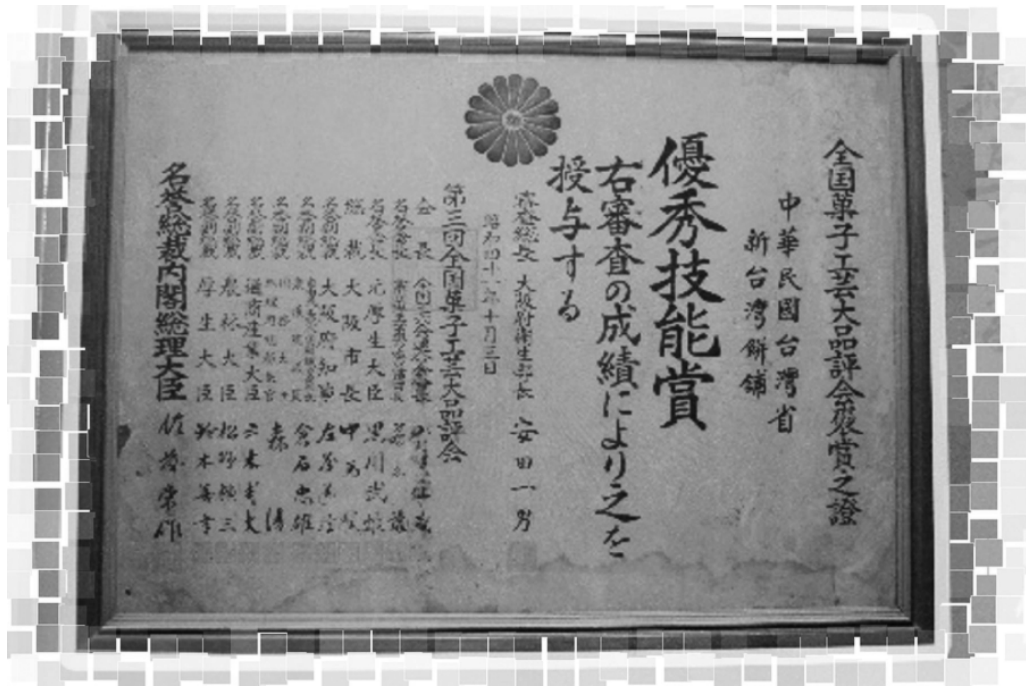 全国菓子工芸大品評会褒賞之證
中華民國台灣省
新台灣餅舗
優秀技能賞
右審査の成績により之を
授与する
審査総長 大阪府衛生部長 安田一男
昭和四十一年十月三日
第三回全国菓子工芸大品評会
会長
名誉会長
名誉会長 元厚生大臣 黒川武雄
総裁 大阪市長 中馬馨
名誉副総裁 大阪府知事 左藤義詮
名誉副総裁 倉石忠雄
名誉副総裁 森清
名誉副総裁 通商産業大臣 三木武夫
名誉副総裁 農林大臣 松野頼三
名誉副総裁 厚生大臣 鈴木善幸
名誉総裁内閣総理大臣 佐藤栄作